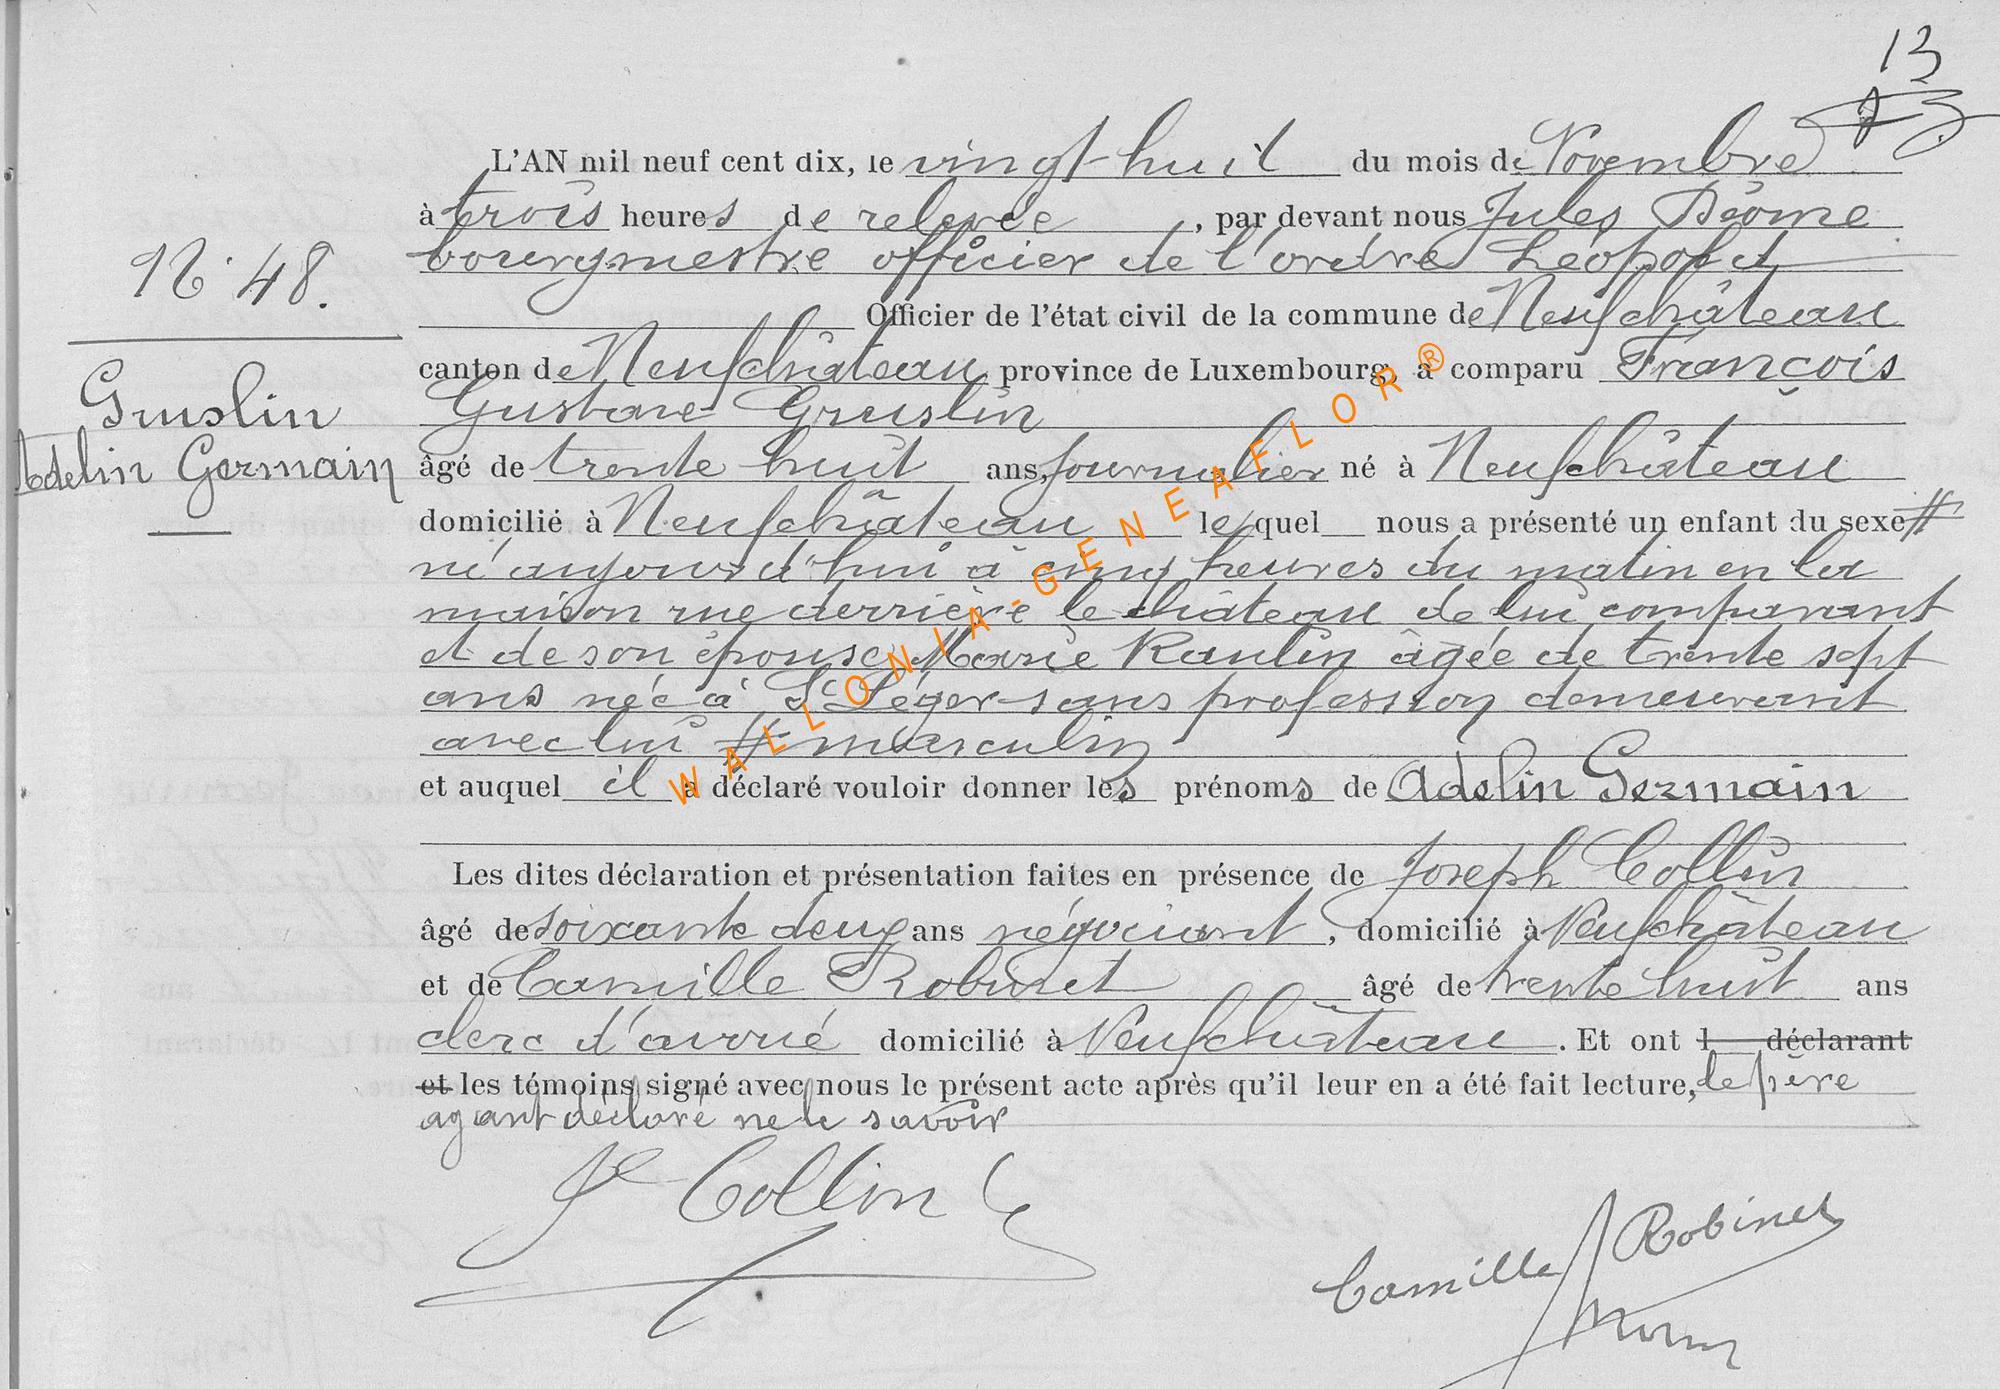 13
L'AN mil neuf cent dix, le vingt-huit du mois de Novembre
à trois heures de relevée, par devant nous Jules
bourgmestre officier de l'ordre Léopold
N° 48.
Officier de l'état civil de la commune de Neufchâteau
canton de Neufchâteau province de Luxembourg, a comparu François
Gustave Gruslin
Gruslin
Adelin Germain
âgé de trente huit ans, journalier né à Neufchâteau
domicilié à Neufchâteau lequel nous a présenté un enfant du sexe #
né aujourd'hui à cinq heures du matin en la
maison rue derrière le château de lui comparant
et de son épouse Marie Raulin âgée de trente sept
ans née à St Léger sans profession demeurant
avec lui # masculin
et auquel il a déclaré vouloir donner les prénoms de Adelin Germain
Les dites déclaration et présentation faites en présence de Joseph Collin
âgé de soixante deux ans négociant, domicilié à Neufchâteau
et de Camille Robinet âgé de trente huit ans
clerc d'avoué domicilié à Neufchâteau. Et ont l déclarant
et les témoins signé avec nous le présent acte après qu'il leur en a été fait lecture, le père
ayant déclaré ne le savoir
Collin
Camille Robinet
WALLONIA-GENEAFLOR®